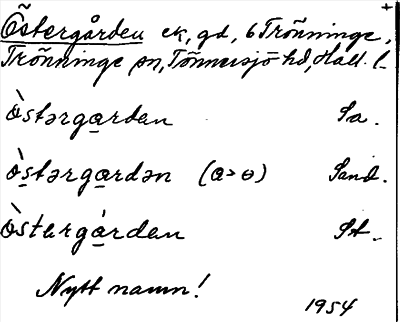 +
Östergården ek, gd, 6 Trönninge,
Trönninge sn, Tönnersjö hd, Hall. l.
òstərga̲rdən Sa.
ò̲stərga̲rdən (a > ɵ) Sand.
òstərgá̲rdən St.
Nytt namn!
1954